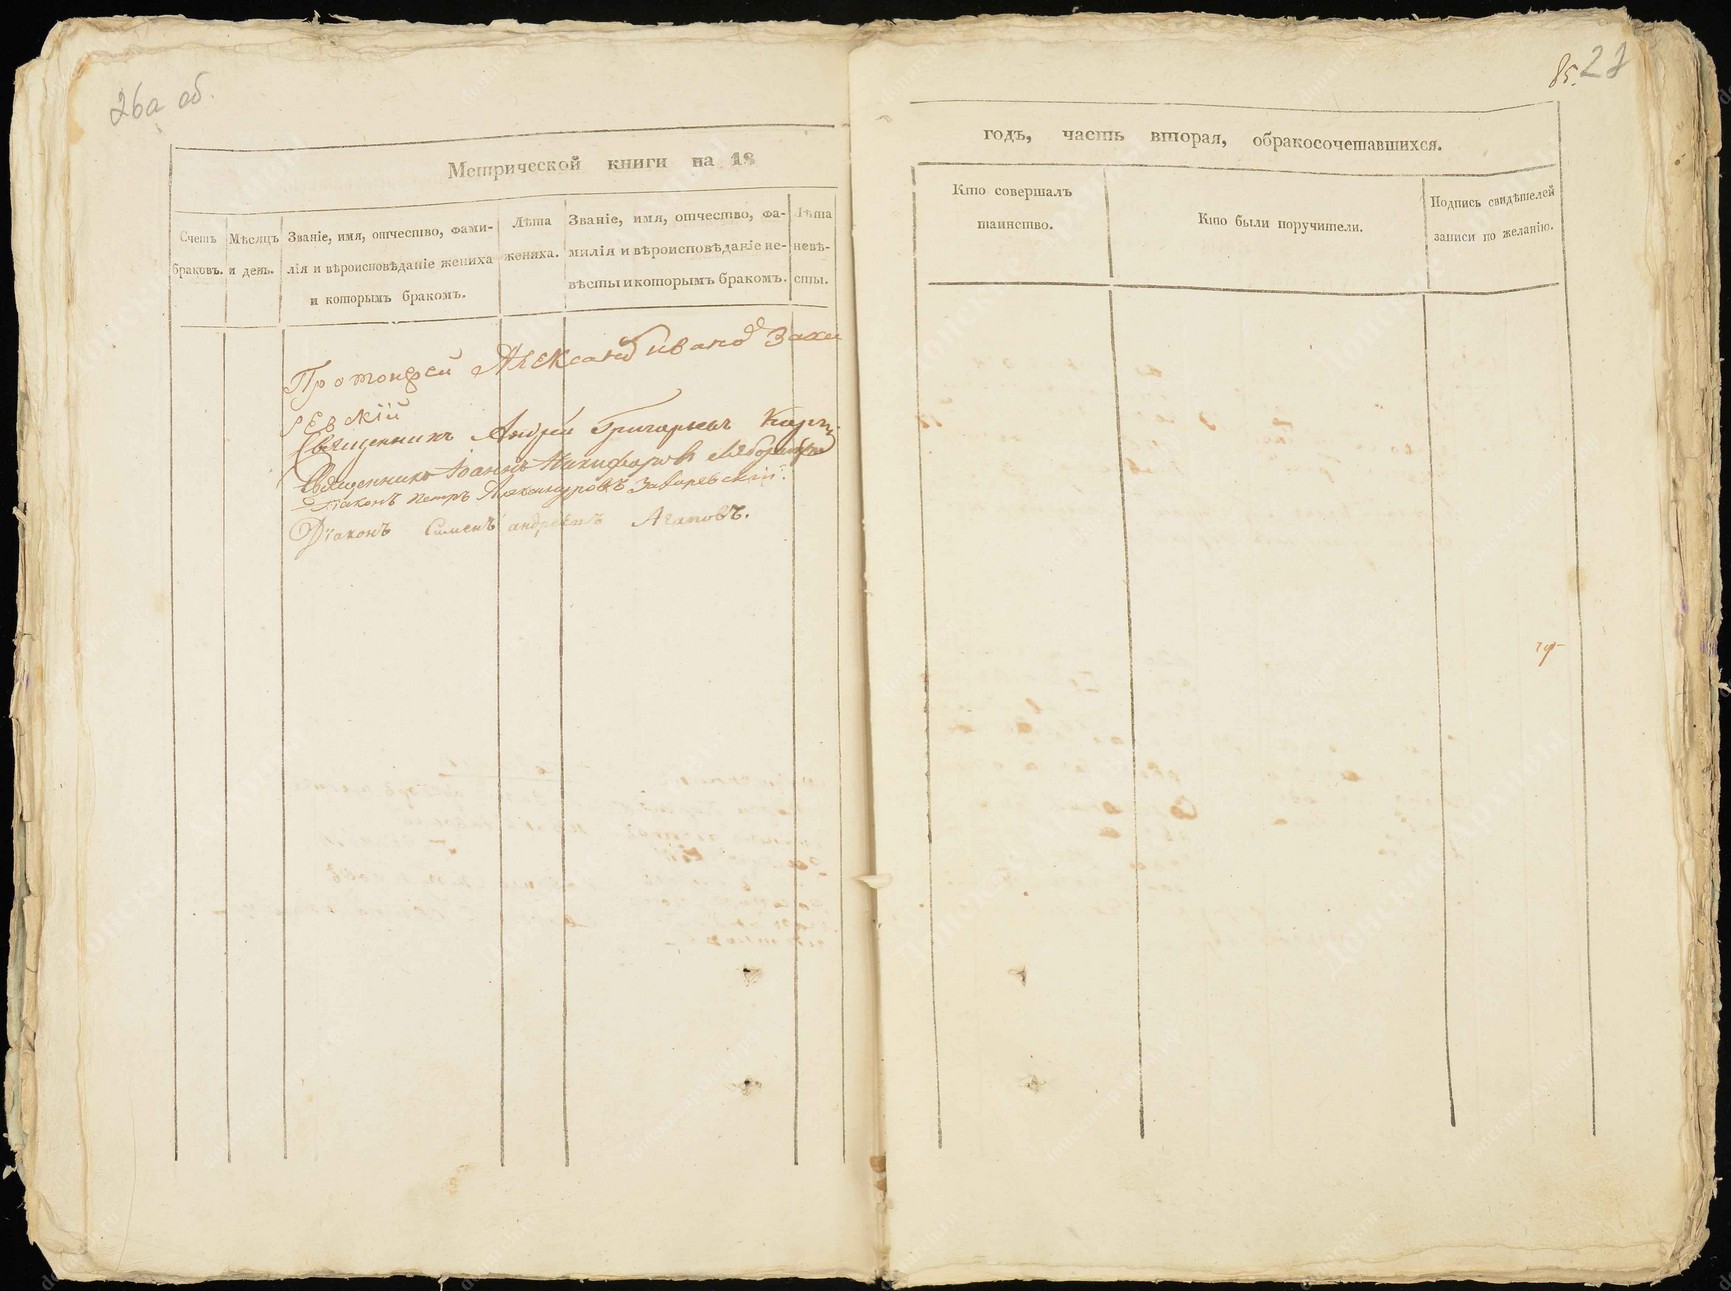 26а об.
Метрической книги на 18
Счетъ браковъ.
Мѣсяцъ и день.
Званіе, имя, отчество, фами-
лія и вѣроисповѣданіе жениха
и которымъ бракомъ.
Лѣта
жениха.
Званіе, имя, отчество, фа-
милія и вѣроисповѣданіе не-
вѣсты и которымъ бракомъ.
Лѣта
невѣ-
сты.
Протоиерей Александр Иванов Заха
ревскій
Священникъ Андрей Григорьевъ
Священникъ Іоаннъ Никифоровъ
Діаконъ Петръ Александровъ Захаревскій
Діаконъ Симеонъ Андреевъ Агаповъ.
85. 27
годъ, часть вторая, обракосочетавшихся.
Кто совершалъ
таинство.
Кто были поручители.
Подпись свидѣтелей
записи по желанію.